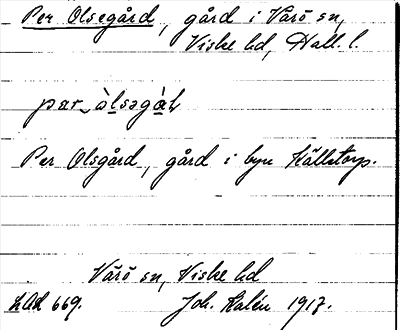 Per Olsegård, gård i Värö sn,
Viske hd, Hall. l.
par_òlsəgàɫ
Per Olsgård, gård i byn Källstorp.
Värö sn, Viske hd
LAA 669. Joh. Kalén 1917.